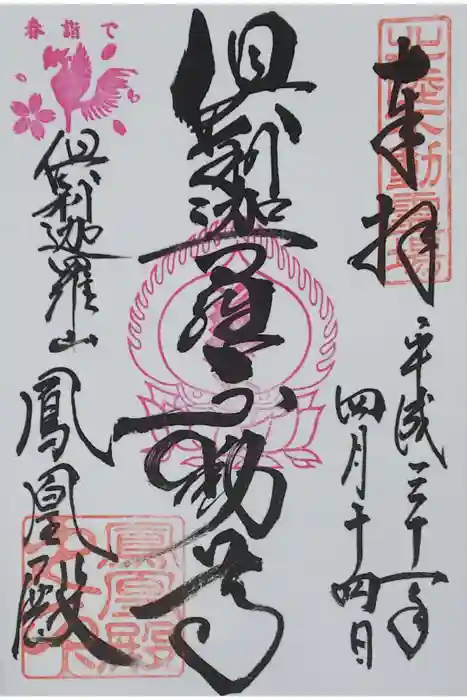 北陸不動霊場
奉拝
平成三十一年
四月十四日
倶利迦羅不動尊
春詣で
倶利迦羅山
鳳凰殿
鳳凰殿